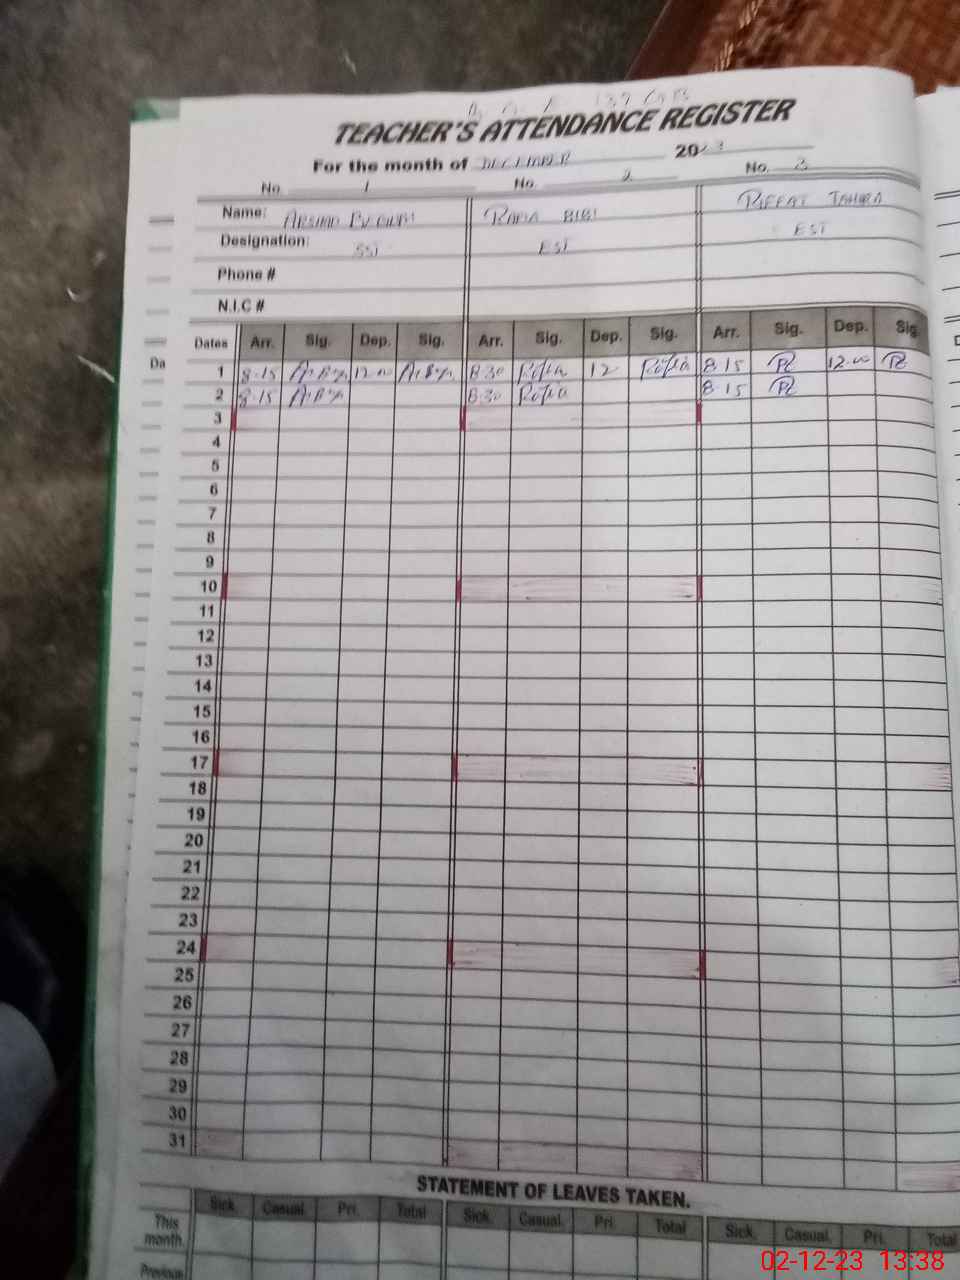 TEACHER'S ATTENDANCE REGISTER
For the month of DECEMBER 2023
No. 1 No. 2 No. 3
Name: RIFFAT TAHIRA
BIBI
Designation: SST EST EST
Phone #
N.I.C #
Dates Arr. Sig. Dep. Sig. Arr. Sig. Dep. Sig. Arr. Sig. Dep. Sig.
Da
1 8.15 12.00 8.30 12 8.15 12.00
2 8.15 8.30 8.15
3
4
5
6
7
8
9
10
11
12
13
14
15
16
17
18
19
20
21
22
23
24
25
26
27
28
29
30
31
STATEMENT OF LEAVES TAKEN.
Sick Casual Pri. Total Sick. Casual. Pri. Total Sick. Casual. Pri. Total
This month.
Previous
02-12-23 13:38